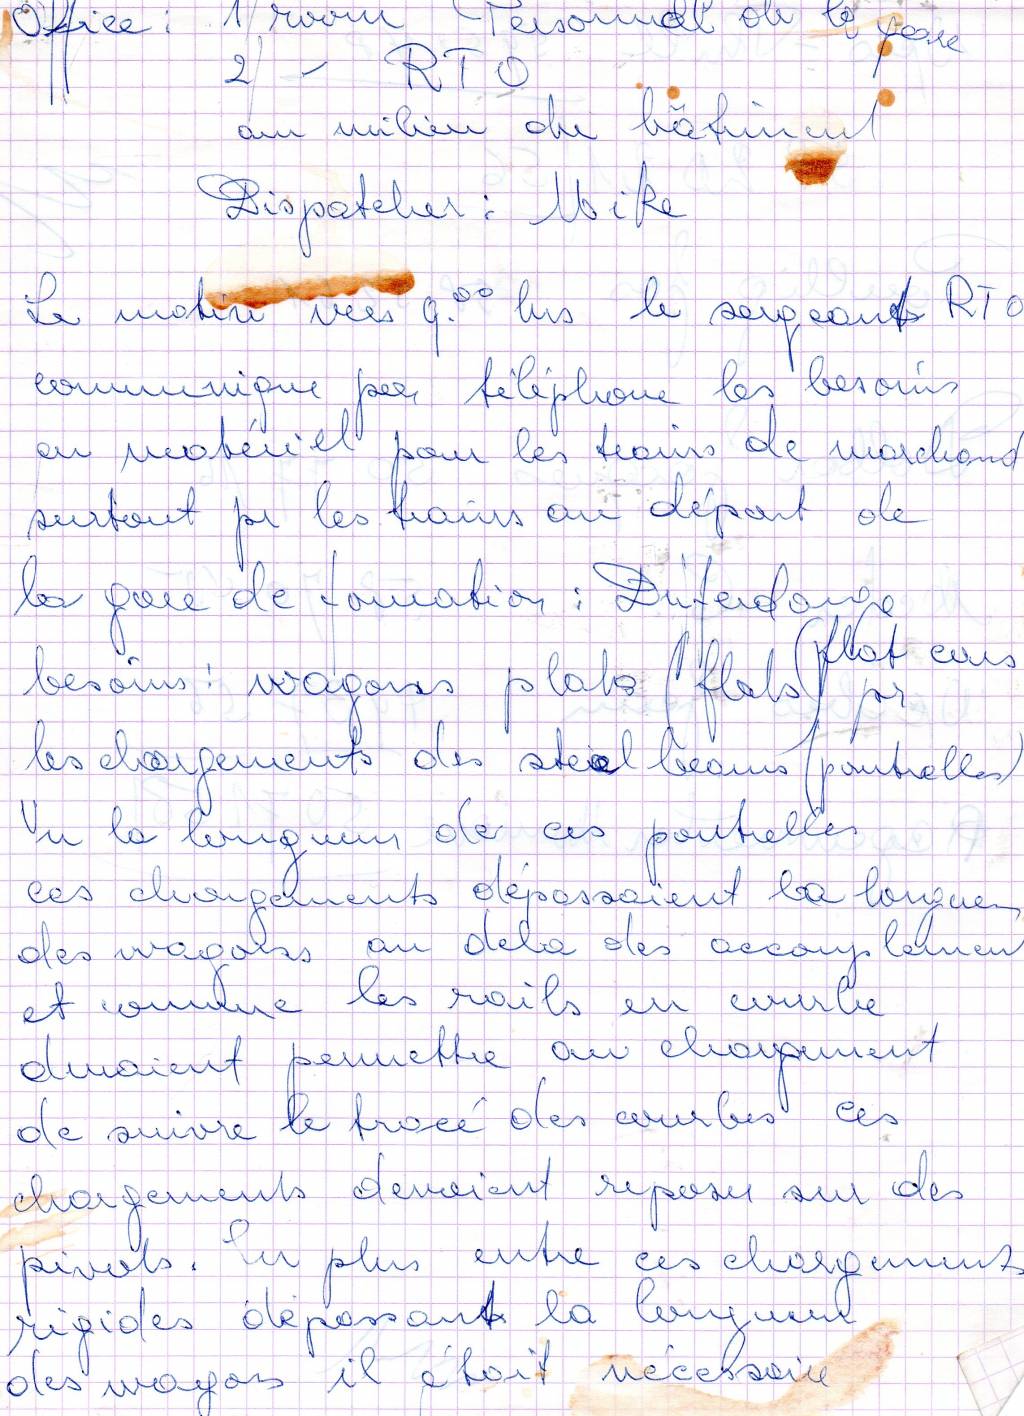 Office: 1/ room Personnel de la gare
2/ - RTO
au milieu du bâtiment
Dispatcher: Mike
Le matin vers 9.00 hrs le sergeant RTO
communique par téléphone les besoins
en matériel pour les trains de marchand
surtout pr les trains au départ de
la gare de formation: Differdange
besoins: wagons plats (flats) (flat cars) pr
les chargements des steel beams (poutrelles)
Vu la longueur de ces poutrelles
ces chargements dépassaient la longueur
des wagons au delà des accouplement
et comme les rails en courbe
devaient permettre au chargement
de suivre le tracé des courbes ces
chargements devaient reposer sur des
pivots. En plus entre ces chargements
rigides dépassant la longueur
des wagons il était nécessaire